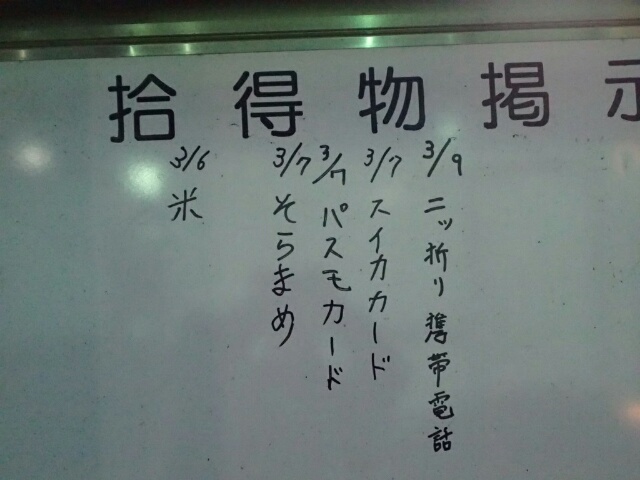 拾得物掲示
3/9 ニッ折り携帯電話
3/7 スイカカード
3/7 パスモカード
3/7 そらまめ
3/6 米